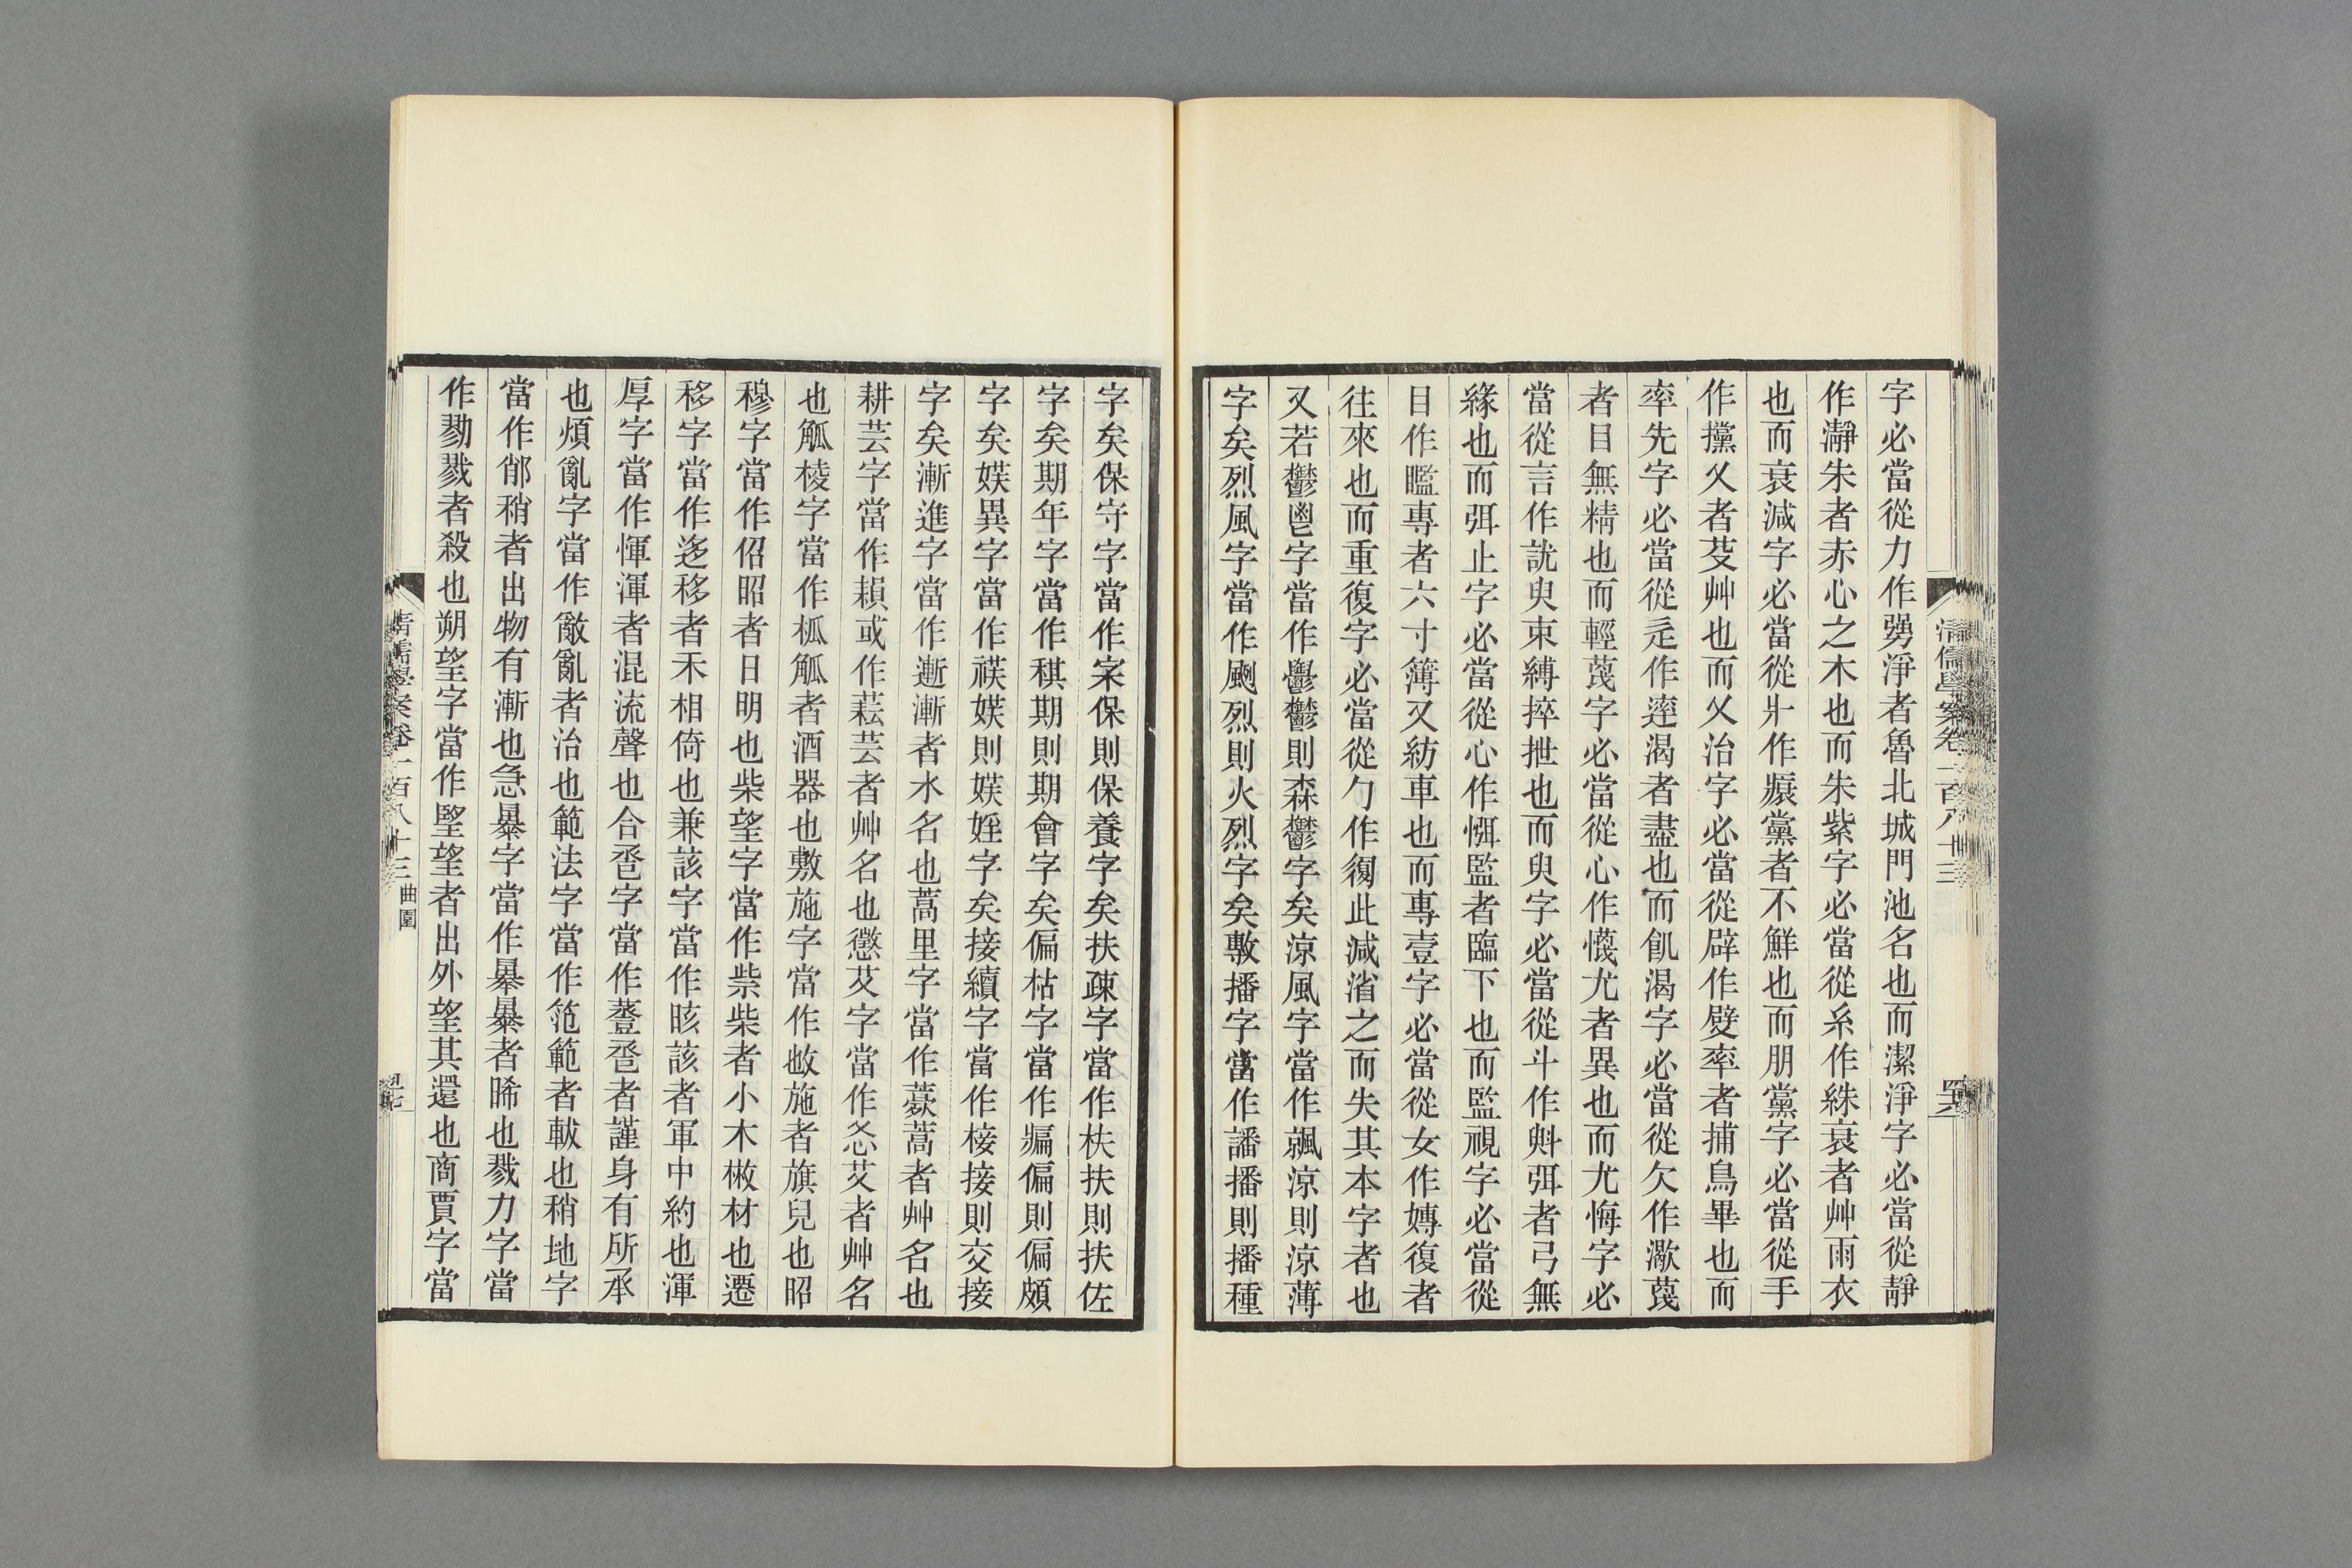 字必當從力作勥淨者魯北城門池名也而潔淨字必當從靜
作瀞朱者赤心之木也而朱紫字必當從糸作絑衰者艸雨衣
也而衰減字必當從爿作㾊黨者不鮮也而朋黨字必當從手
作攩乂者芟艸也而乂治字必當從辟作嬖率者捕鳥畢也而
率先字必當從辵作達渴者盡也而飢渴字必當從欠作㵣蔑
者目無精也而輕蔑字必當從心作懱尤者異也而尤悔字必
當從言作訧臾束縛捽抴也而臾字必當從斗作斞弭者弓無
緣也而弭止字必當從心作㥝監者臨下也而監視字必當從
目作䀌專者六寸簿又紡車也而專壹字必當從女作嫥復者
往來也而重復字必當從勹作㚆此減渻之而失其本字者也
又若鬱鬯字當作鬱鬱則森鬱字矣涼風字當作飊涼則涼薄
字矣烈風字當作颲烈則火烈字矣敷播字當作譒播則播種
字矣保守字當作宲保則保養字矣扶疎字當作枎扶則扶佐
字矣期年字當作稘期則期會字矣偏枯字當作㾫偏則偏頗
字矣媄異字當作祦媄則媄姪字矣接續字當作椄接則交接
字矣漸進字當作𨘌漸者水名也蒿里字當作薧蒿者艸名也
耕芸字當作䅵或作𦔐芸者艸名也懲艾字當作㣻艾者艸名
也觚棱字當作柧觚者酒器也敷施字當作𢻱施者旗兒也昭
穆字當作佋昭者日明也柴望字當作祡柴者小木散材也遷
移字當作迻移者禾相倚也兼該字當作晐該者軍中約也渾
厚字當作惲渾者混流聲也合巹字當作𧯷巹者謹身有所承
也煩亂字當作敵亂者治也範法字當作笵範者軷也稍地字
當作䣠稍者出物有漸也急暴字當作㬥暴者晞也戮力字當
作勠戮者殺也朔望字當作朢望者出外望其還也商賈字當
清儒學案卷一百八十三 曲園